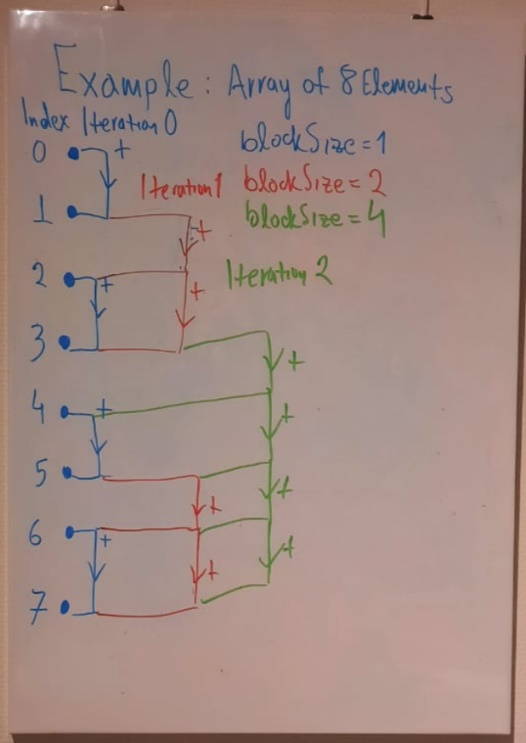 Example: Array of 8 Elements
Index Iteration 0
blockSize=1
0 +
Iteration 1 blockSize=2
1
blockSize=4
+
2 + +
Iteration 2
3
+
4 + +
5 +
+
6 + +
+
7